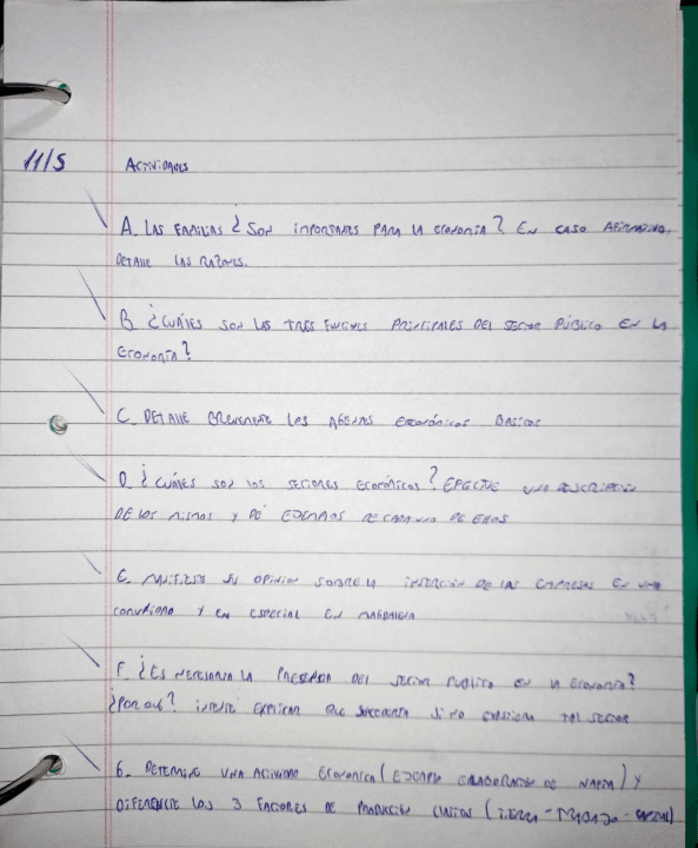 11/5 Actividades
A. Las familias ¿Son importantes para la economía? En caso afirmativo,
detalle las razones.
B ¿Cuáles son las tres funciones principales del sector público en la
economía?
C. Detalle brevemente los agentes económicos basicos
D. ¿Cuáles son los sectores económicos? Efectúe una descripción
de los mismos y dé ejemplos de cada uno de ellos
E. Manifieste su opinion sobre la inserción de las empresas en una
comunidad y en especial en Magdalena
F. ¿Es necesaria la presencia del sector publico en la economía?
¿Por qué? intente explicar que sucedería si no existiera tal sector
G. Determine una actividad económica (ejemplo elaboración de nafta) y
diferencie los 3 factores de producción (tierra - trabajo - capital)